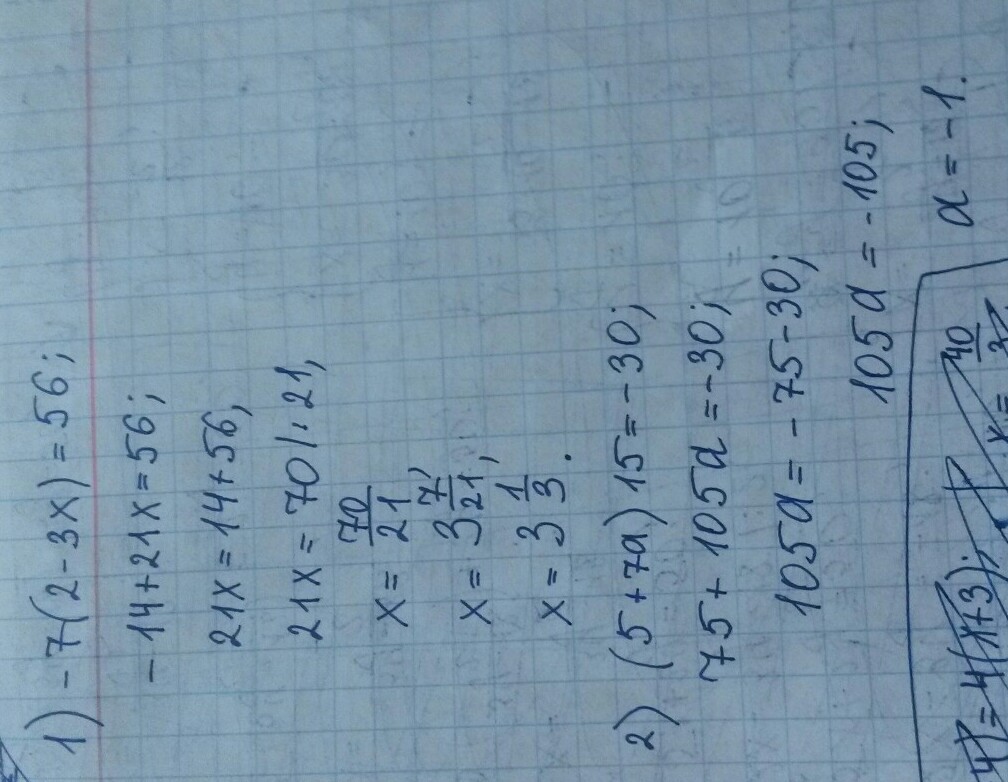 1) -7(2-3x)=56;
-14+21x=56;
21x=14+56,
21x=70 |:21,
x=70/21,
x=3 7/21,
x=3 1/3.
2) (5+7a)15=-30;
75+105a=-30;
105a=-75-30;
105a=-105;
a=-1.
=4(x+3);
x=40/